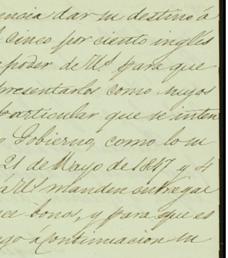 encia dar su destino á
l cinco por ciento inglés
poder de VS. para que
presentarlos como suyos
particular que se inten
o Gobierno, como lo u
21 de Mayo de 1847 y 4
VS manden entregar
ce bonos, y para que es
go á continuacion su